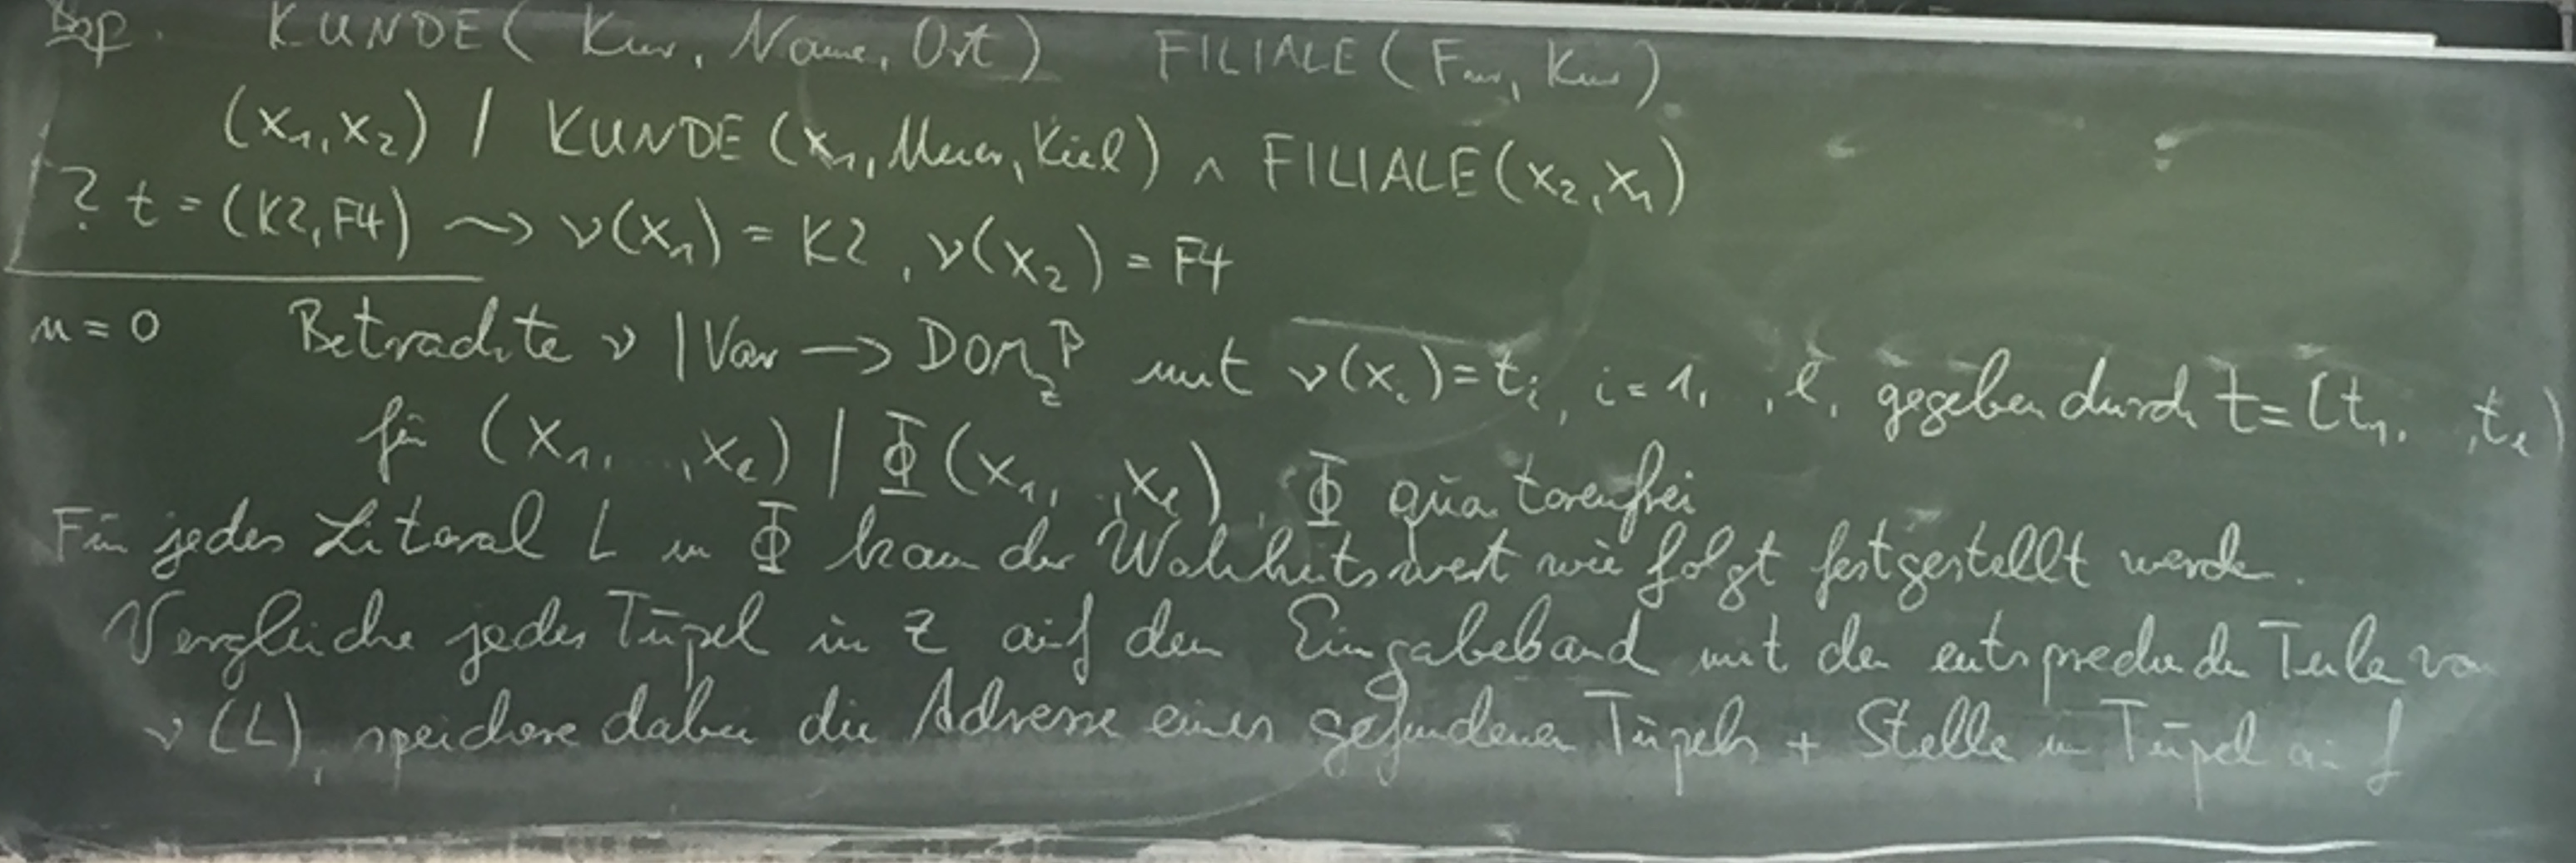 Bsp. KUNDE( Knr, Name, Ort) FILIALE( Fnr, Knr)
(x₁,x₂) / KUNDE(x₁, Meier, Kiel) ∧ FILIALE(x₂,x₁)
? t = (K2,F4) ⇝ ν(x₁) = K2, ν(x₂) = F4
n = 0 Betrachte ν | Var → DOM mit ν(xᵢ) = tᵢ, i = 1, ,ℓ, gegeben durch t = (t₁, ,tℓ)
für (x₁, ..,xℓ) / Φ(x₁, ..,xℓ), Φ quantorenfrei
Für jedes Literal L in Φ kann der Wahrheitswert wie folgt festgestellt werden.
Vergleiche jedes Tupel in z auf dem Eingabeband mit den entsprechenden Teilen von
ν(L), speichere dabei die Adresse eines gefundenen Tupels + Stelle im Tupel auf